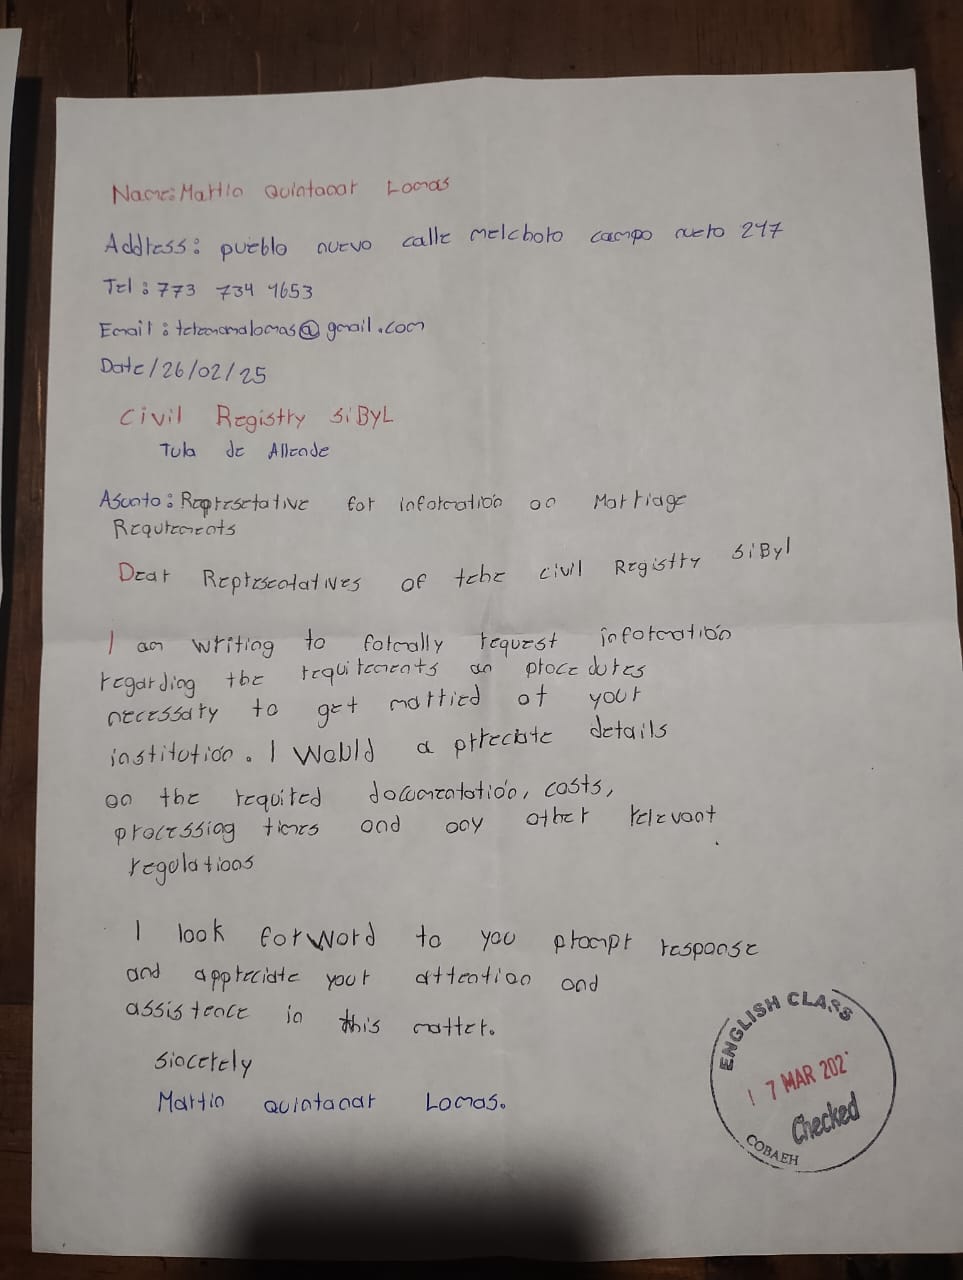 Name: Martin Quintanar Lomas
Address: pueblo nuevo calle melchoro campo nuero 247
Tel: 773 734 1653
Email: tetemomalomas@gmail.com
Date/26/02/25
Civil Registry SiByL
Tula de Allende
Asunto: Represetative for information on Marriage
Requrements
Dear Representatives of tehe civil Registry SiByl
I am writing to formally request information
regarding the requirements an procedures
necessary to get married at your
institution. I Would a prreciate details
on the required documentation, costs,
processing times and any other relevant
regulations
I look forword to you prompt response
and appreciate your attention and
assistence in this matter.
Sincerely
Martin Quintanar Lomas.
ENGLISH CLASS
17 MAR 202
Checked
COBAEH